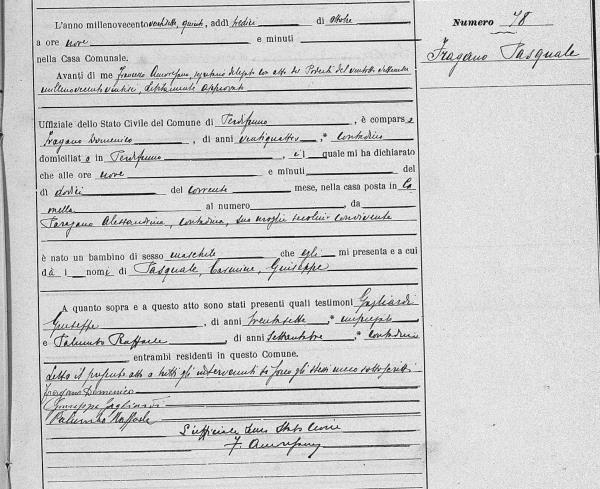 L'anno millenovecento ventisette, quinto, addì tredici di ottobre
a ore nove e minuti
nella Casa Comunale.
Avanti di me Francesco Amoresano, segretario delegato con atto del Podestà del ventotto settembre
millenovecento ventisei, debitamente approvato
Uffiziale dello Stato Civile del Comune di Perdifumo, è compars o
Fragano Domenico, di anni ventiquattro, contadino
domiciliat o in Perdifumo, il quale mi ha dichiarato
che alle ore nove e minuti del
dì dodici del corrente mese, nella casa posta in
al numero, da
Alessandrina, contadina, sua moglie seco lui convivente
è nato un bambino di sesso maschile che egli mi presenta e a cui
dà i nomi di Pasquale, Carmine, Giuseppe
A quanto sopra e a questo atto sono stati presenti quali testimoni Gagliardi
Giuseppe, di anni trentasette, impiegato
e Palumbo Raffaele, di anni, contadino
entrambi residenti in questo Comune.
Letto il presente atto a tutti gli intervenuti si sono gli stessi meco sottoscritti
Fragano Domenico
Giuseppe Gagliardi
Palumbo Raffaele
L'ufficiale dello Stato Civile
F. Amoresano
Numero 78
Fragano Pasquale